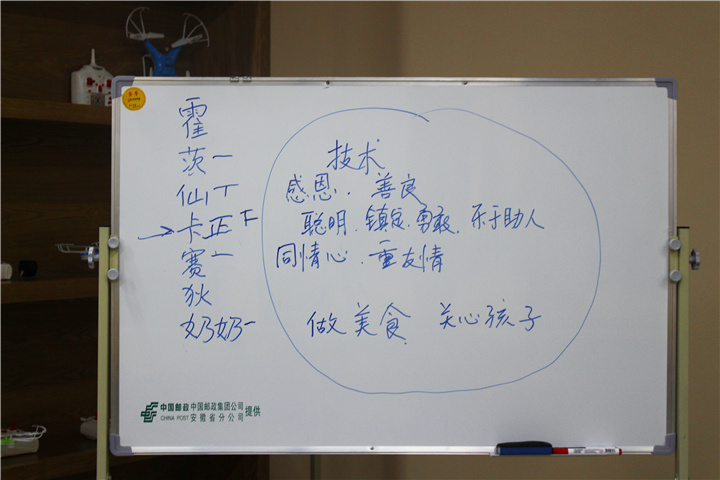 霍
茨 一
仙 丅
→卡 正 𠄟
赛 一
狄
奶奶 一
技术
感恩.. 善良
聪明.镇定.勇敢.乐于助人
同情心.重友情
做美食 关心孩子
中国邮政 中国邮政集团公司
CHINA POST 安徽省分公司 提供